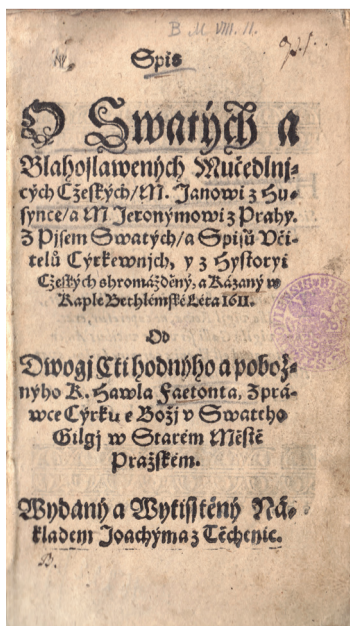 B M VIII. 11.
Spis
O Swatých a
Blahoslawených Mučedlnj-
cých Cžeských/ M. Janowi z Hu-
synce/ a M Jeronýmowi z Prahy.
Z Pjsem Swatých/ a Spisů Vči-
telů Cýrkewnjch, y z Hystoryí
Cžeských shromážděný, a Kázaný w
Kaple Bethlémské Léta 1611.
Od
Dwogj Cti hodného a pobož-
nýho K. Hawla Faetonta, Zprá-
wce Cýrkwe Božj v Swatého
Gilgj w Starém Městě
Pražském.
Wydaný a Wytisstěný Ná-
kladem Joachýma z Těchenic.
B.